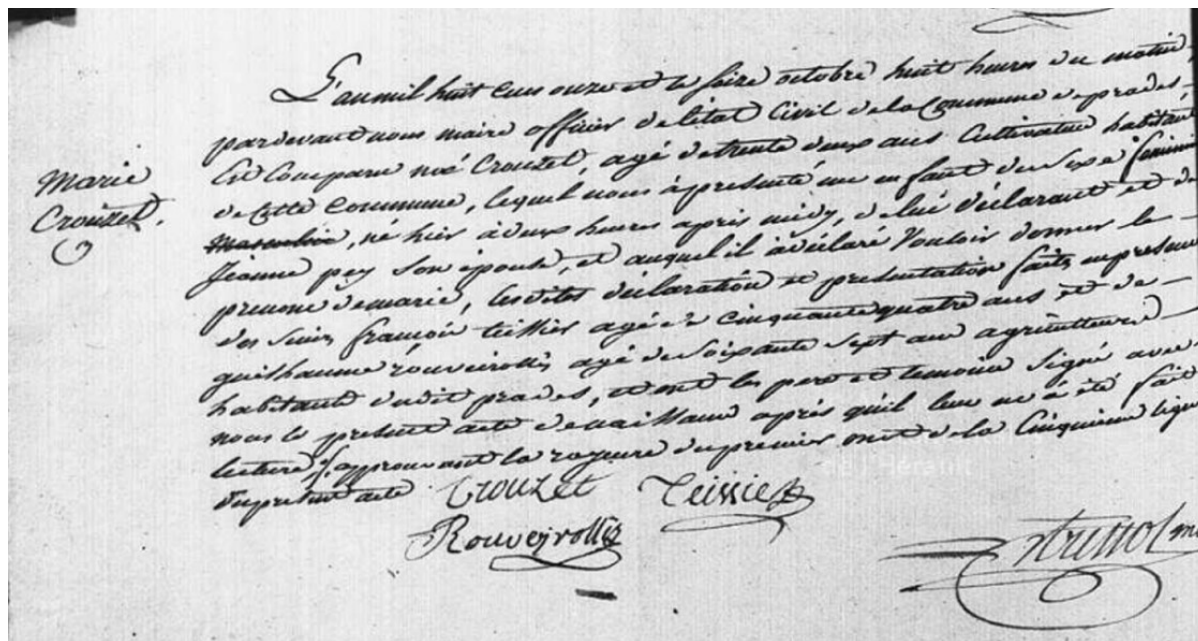 Marie
Crouzet.
L'an mil huit cens onze et le seize octobre huit heures du matin,
pardevant nous maire officier de l'état Civil de la Commune de prades -
Est Comparu noé Crouzet, agé de trente deux ans Cultivateur habitant
de Cette Commune, lequel nous à présenté un enfant du Sexe feminin
masculin, né hier à deux heures après midy, de lui déclarant et de
Jeanne pey son épouse, et auquel il à déclaré Vouloir donner le -
prenom de marie, lesdites déclaration et presentation faites en presence
des Srs françois teissier agé de cinquante quatre ans et de -
guilhaume rouveirollis agé de soixante sept ans agriculteurs -
habitants dudit prades, et ont les pere et temoins signé avec
nous le present acte de naissance après qu'il leur en à été fait
lecture /. approuvant la rayeure du premier mot de la Cinquieme ligne
du present acte
Crouzet Teissier
Rouveyrollis